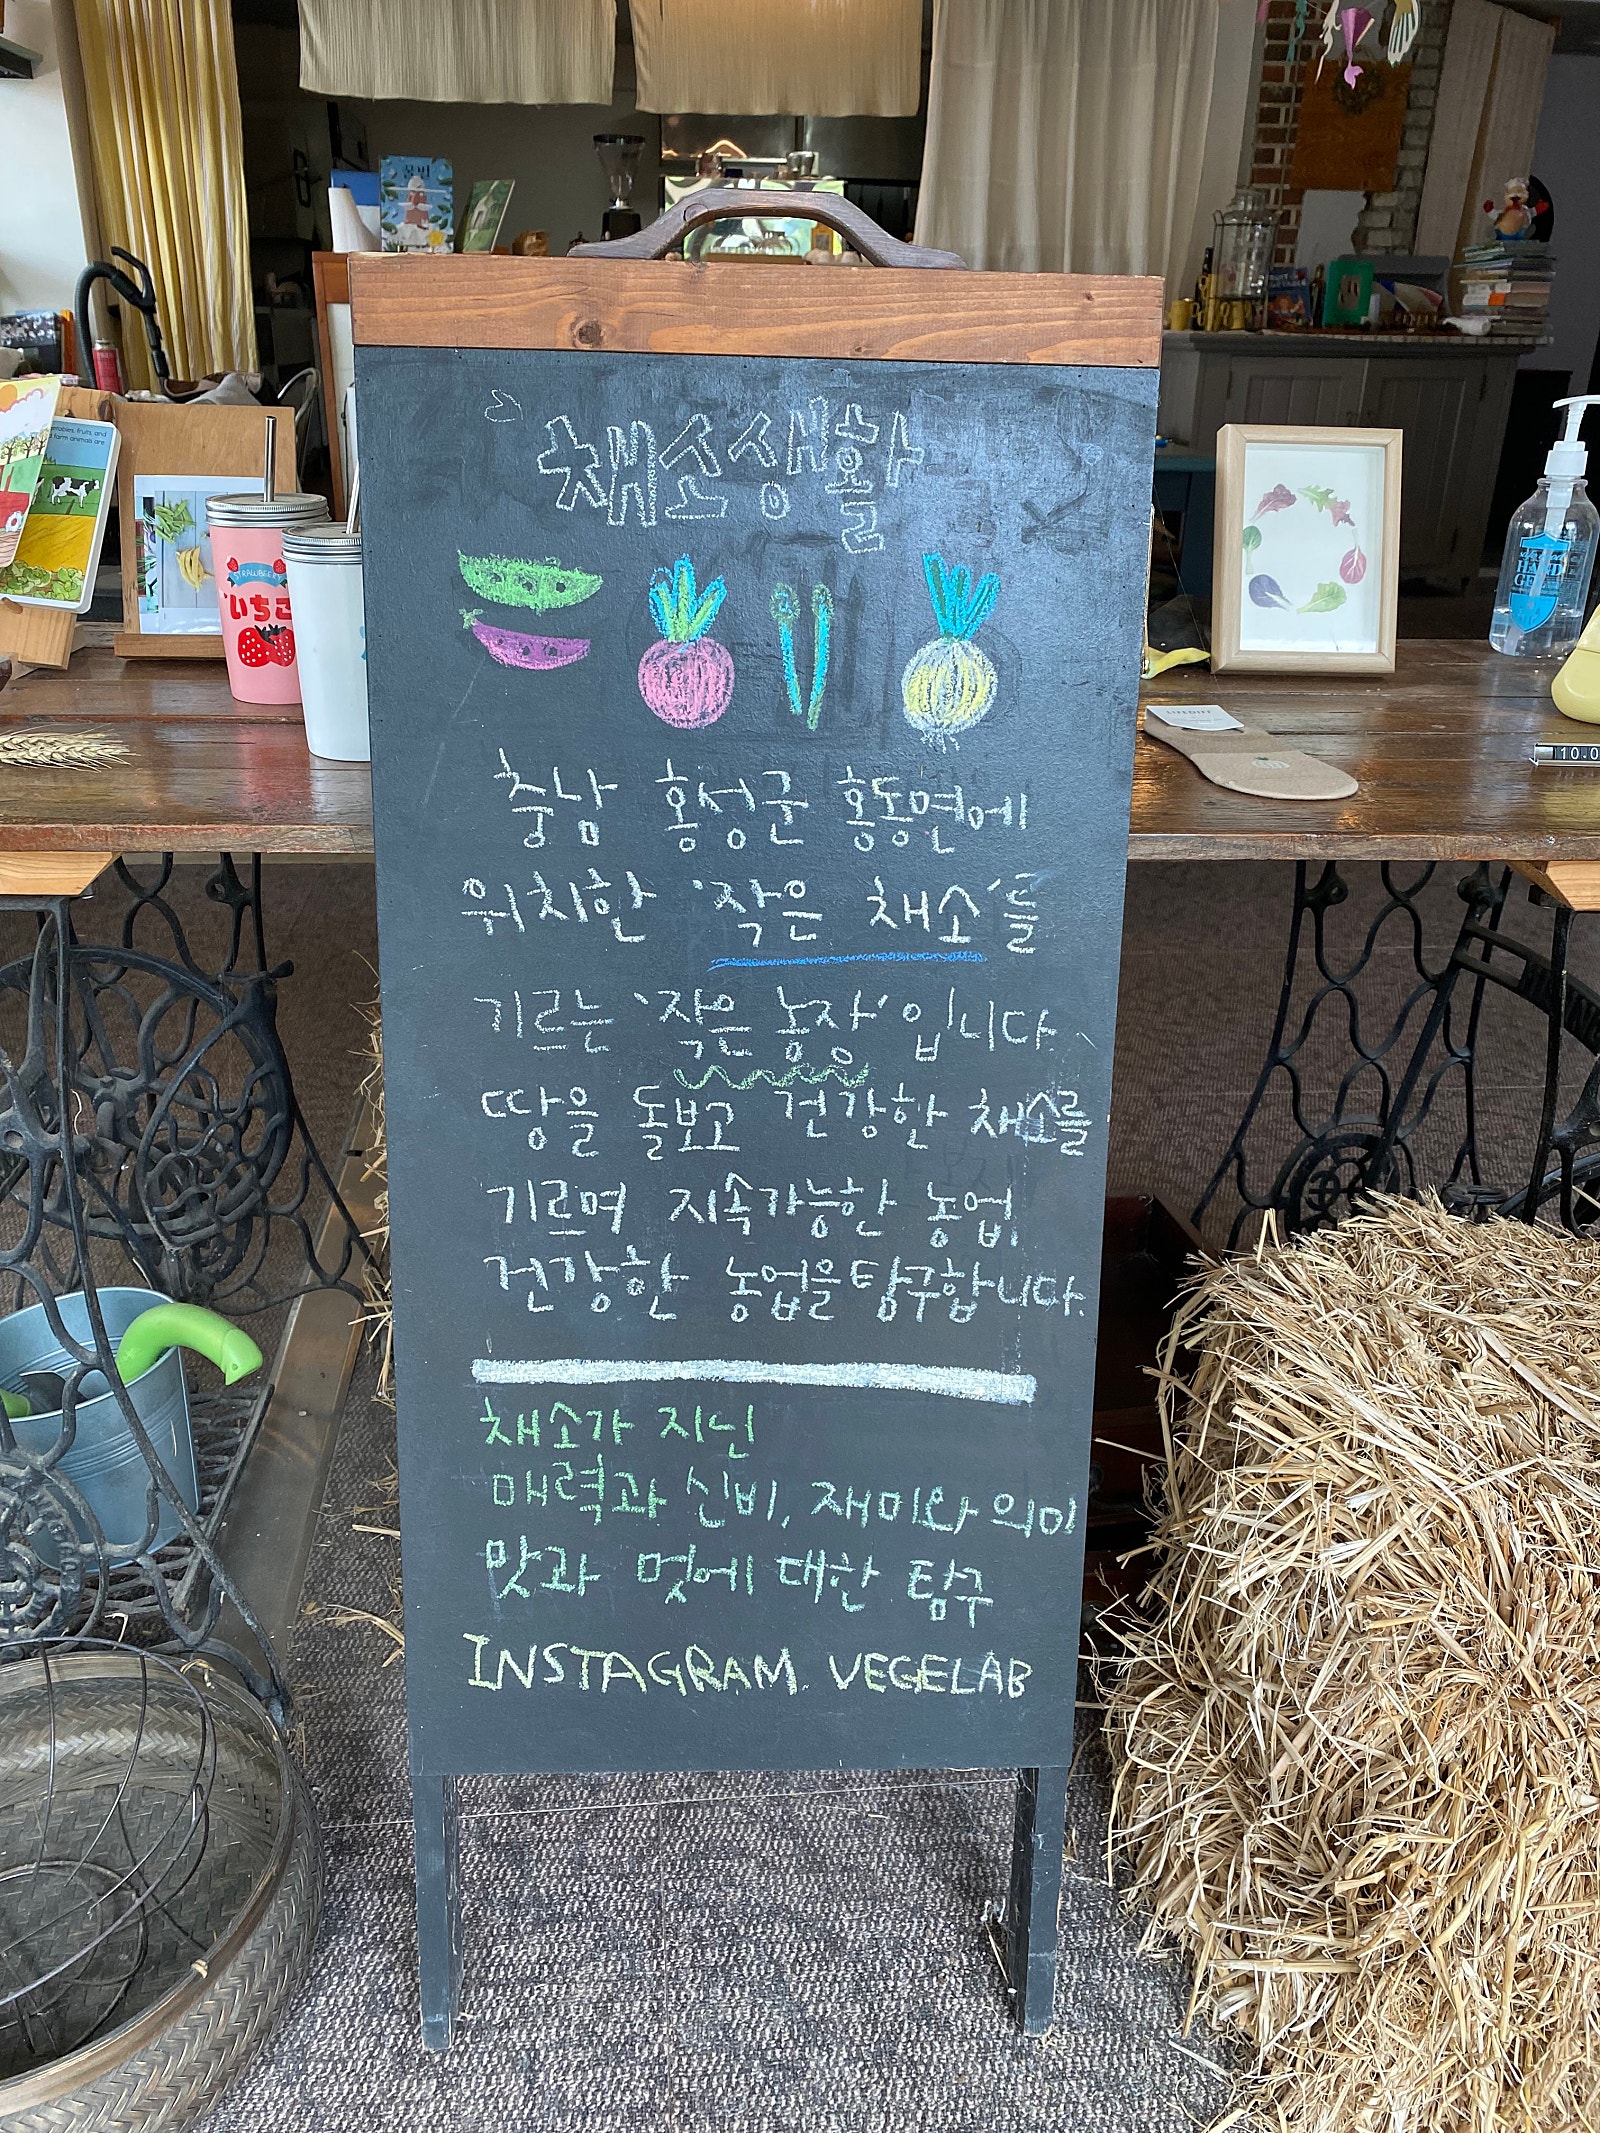 채소생활
충남 홍성군 홍동면에
위치한 '작은 채소'를
기르는 '작은 농장'입니다
땅을 돌보고 건강한 채소를
기르며 지속가능한 농업,
건강한 농업을 탐구합니다.
채소가 지닌
매력과 신비, 재미와 의미
맛과 멋에 대한 탐구
INSTAGRAM. VEGELAB
STRAWBERRY
いちご
farm animals are